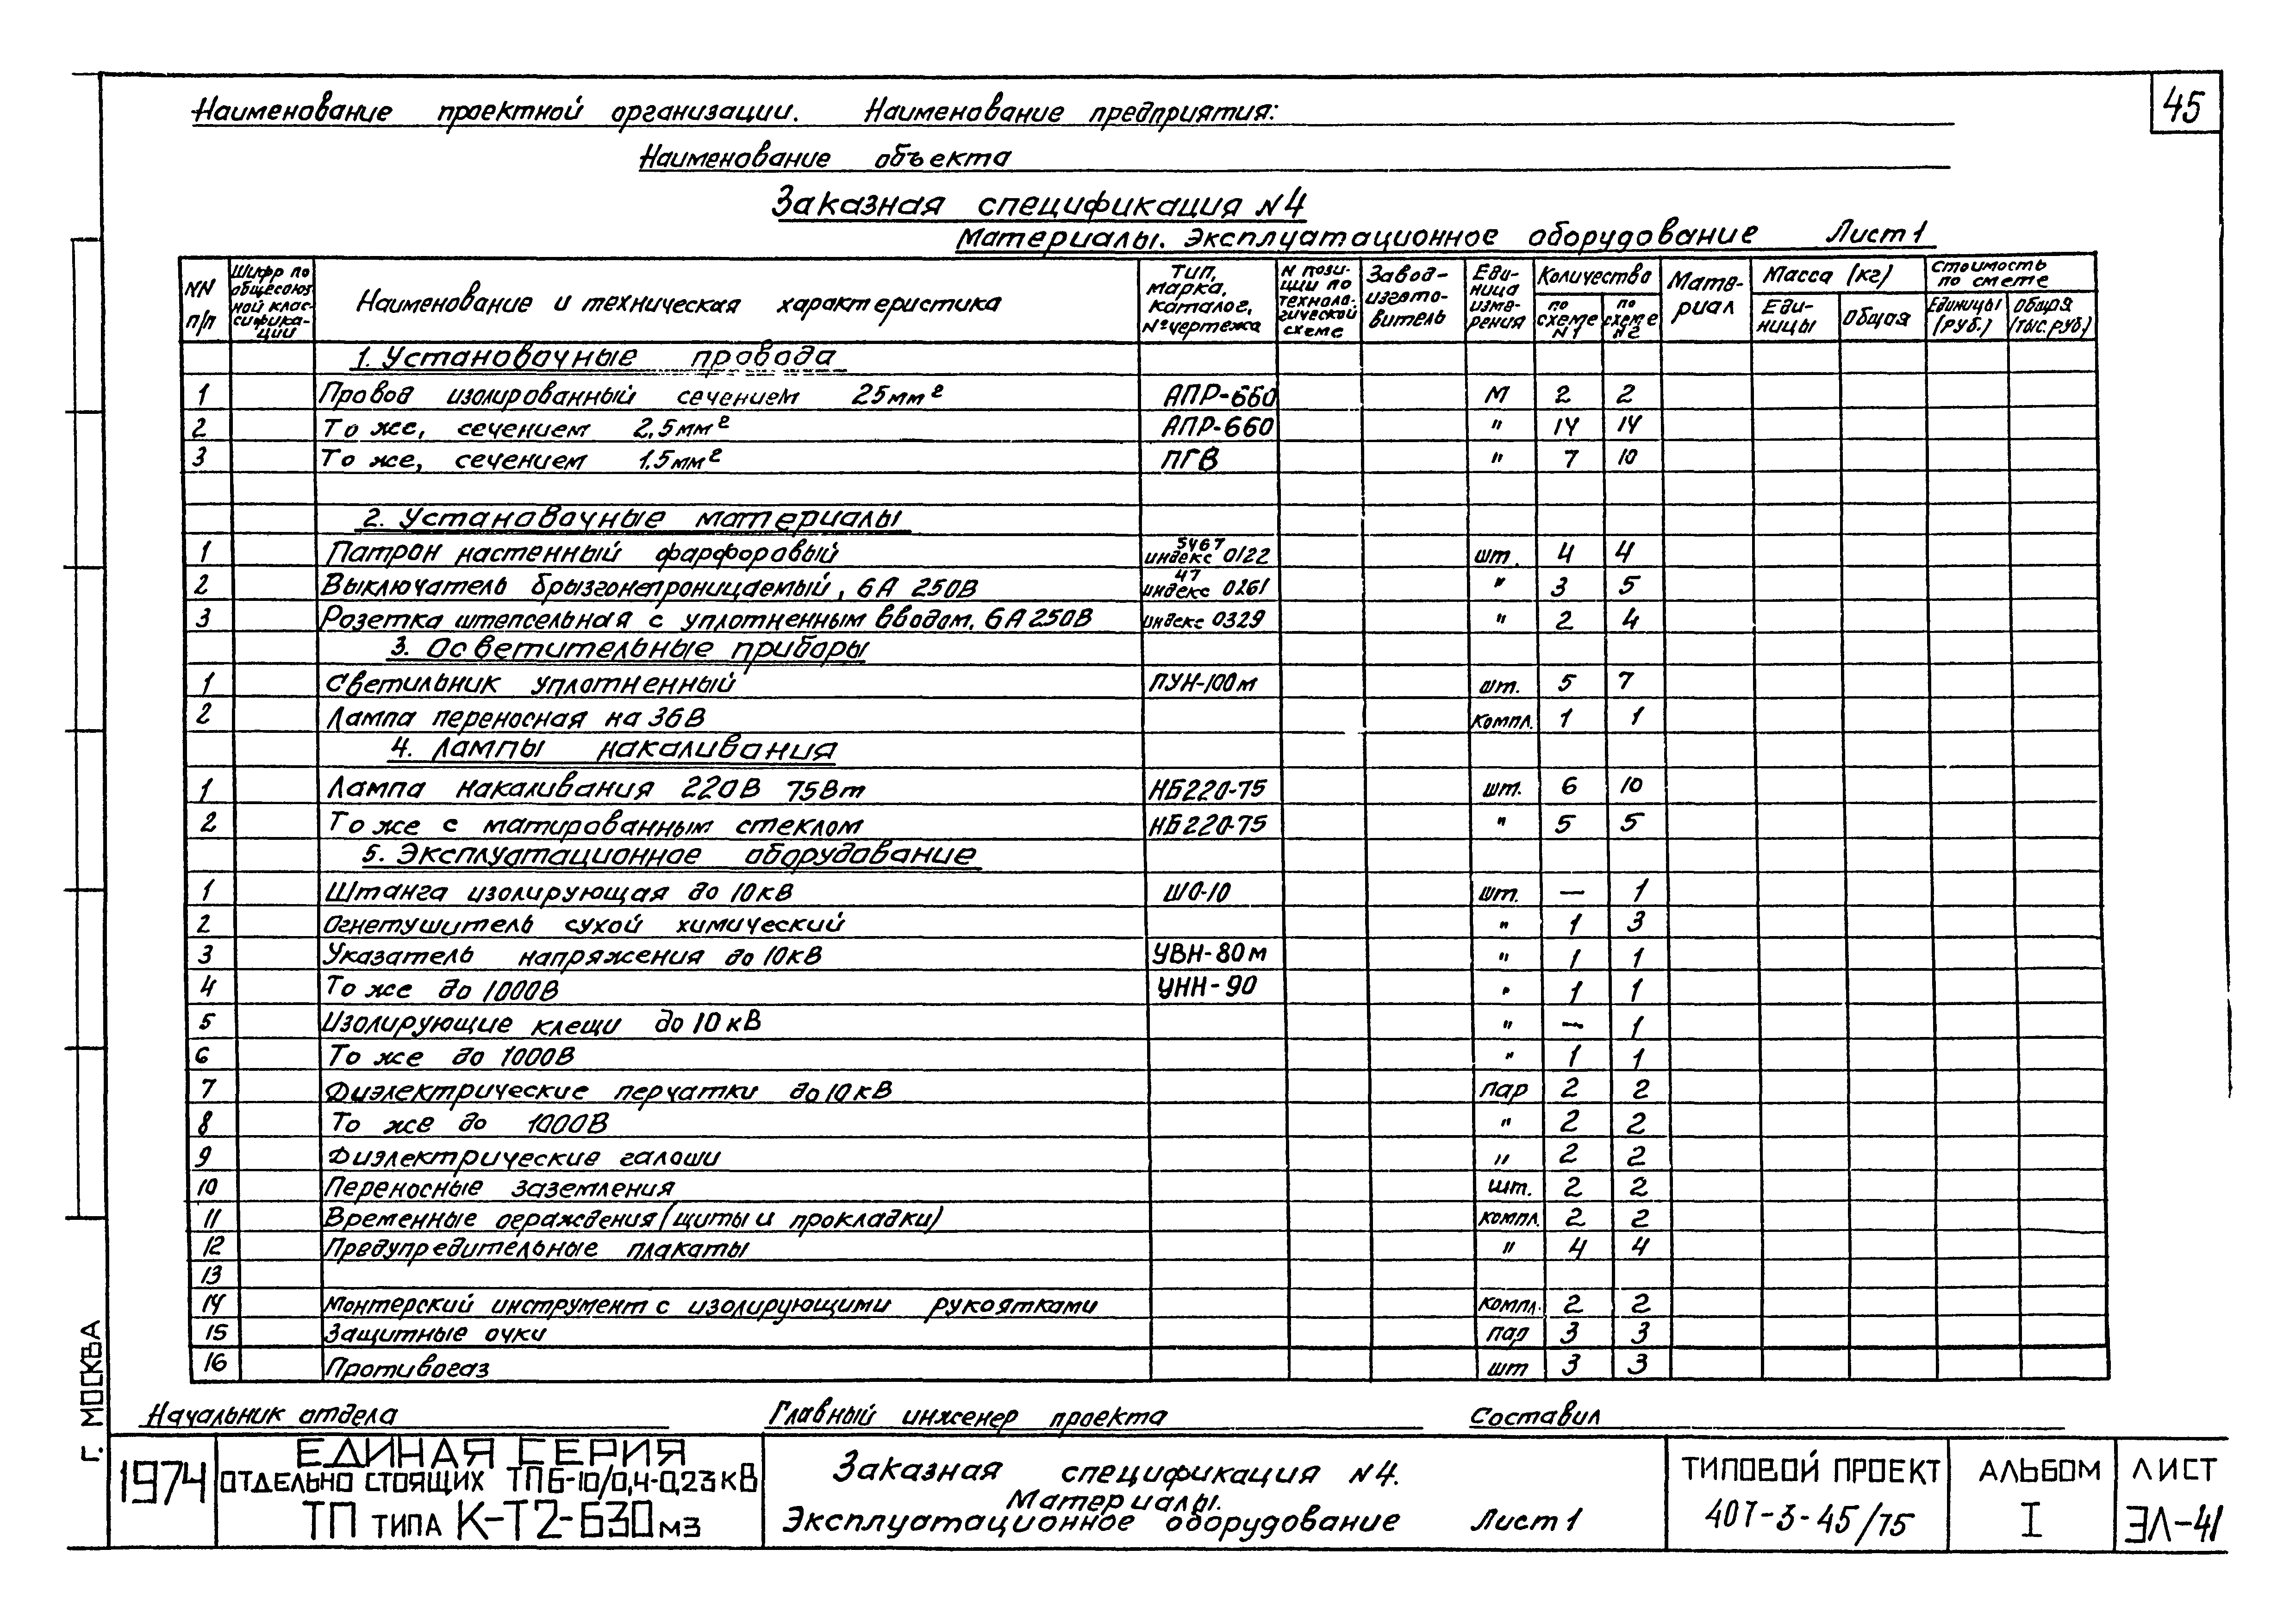 45
Наименование проектной организации. Наименование предприятия:
Наименование объекта
Заказная спецификация N4
Материалы. Эксплуатационное оборудование Лист 1
NN п/п
Шифр по общесоюзной классификации
Наименование и техническая характеристика
Тип, марка, каталог, № чертежа
N позиции по технологической схеме
Завод-изготовитель
Единица измерения
Количество
по схеме N1
по схеме N2
Материал
Масса (кг)
Единицы
Общая
Стоимость по смете
Единицы (руб.)
Общая (тыс. руб.)
1. Установочные провода
1 Провод изолированный сечением 25мм² АПР-660 м 2 2
2 То же, сечением 2,5мм² АПР-660 " 14 14
3 То же, сечением 1,5мм² ПГВ " 7 10
2. Установочные материалы
1 Патрон настенный фарфоровый 5467 индекс 0122 шт. 4 4
2 Выключатель брызгонепроницаемый, 6А 250В 47 индекс 0261 " 3 5
3 Розетка штепсельная с уплотненным вводом, 6А 250В индекс 0329 " 2 4
3. Осветительные приборы
1 Светильник уплотненный ПУН-100м шт. 5 7
2 Лампа переносная на 36В компл. 1 1
4. Лампы накаливания
1 Лампа накаливания 220В 75Вт НБ220-75 шт. 6 10
2 То же с матированным стеклом НБ220-75 " 5 5
5. Эксплуатационное оборудование
1 Штанга изолирующая до 10кВ ШО-10 шт. — 1
2 Огнетушитель сухой химический " 1 3
3 Указатель напряжения до 10кВ УВН-80м " 1 1
4 То же до 1000В УНН-90 " 1 1
5 Изолирующие клещи до 10кВ " — 1
6 То же до 1000В " 1 1
7 Диэлектрические перчатки до 10кВ пар 2 2
8 То же до 1000В " 2 2
9 Диэлектрические галоши " 2 2
10 Переносные заземления шт. 2 2
11 Временные ограждения (щиты и прокладки) компл. 2 2
12 Предупредительные плакаты " 4 4
13
14 Монтерский инструмент с изолирующими рукоятками компл. 2 2
15 Защитные очки пар 3 3
16 Противогаз шт 3 3
Начальник отдела Главный инженер проекта Составил
г. МОСКВА
1974
ЕДИНАЯ СЕРИЯ
ОТДЕЛЬНО СТОЯЩИХ ТП 6-10/0,4-0,23 кВ
ТП ТИПА К-Т2-630 м3
Заказная спецификация N4.
Материалы.
Эксплуатационное оборудование Лист 1
ТИПОВОЙ ПРОЕКТ
407-3-45/75
АЛЬБОМ
I
ЛИСТ
ЭЛ-41